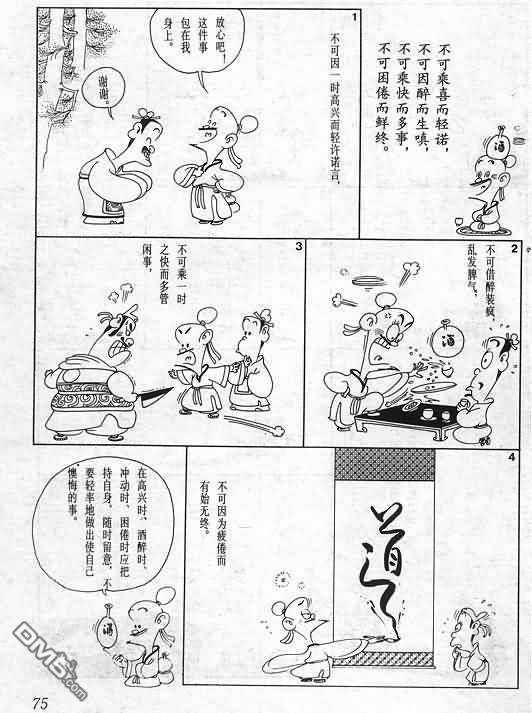 不可乘喜而轻诺，
不可因醉而生嗔，
不可乘快而多事，
不可因倦而鲜终。
酒
1
不可因一时高兴而轻许诺言，
放心吧！
这件事
包在我
身上。
谢谢。
2
不可借醉装疯，
乱发脾气，
酒
3
不可乘一时
之快而多管
闲事，
4
不可因为疲倦而
有始无终。
道
在高兴时、酒醉时、
冲动时、困倦时应把
持自身，随时留意，不
要轻率地做出使自己
懊悔的事。
酒
75